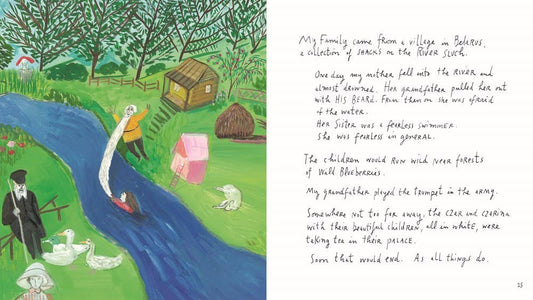 My Family came from a village in Belarus,
a collection of SHACKS on the RIVER SLUCH.
One day my mother fell into the RIVER and
almost drowned. Her grandfather pulled her out
with HIS BEARD. From then on she was afraid
of the water.
Her Sister was a fearless swimmer.
She was fearless in general.
The children would RUN WILD NEAR forests
of Wild Blueberries.
My grandfather played the trumpet in the ARMY.
Somewhere NOT too far away, the CZAR and CZARINA
with their beautiful children, all in white, were
taking tea in their PALACE.
Soon that would end. As all things do.
15